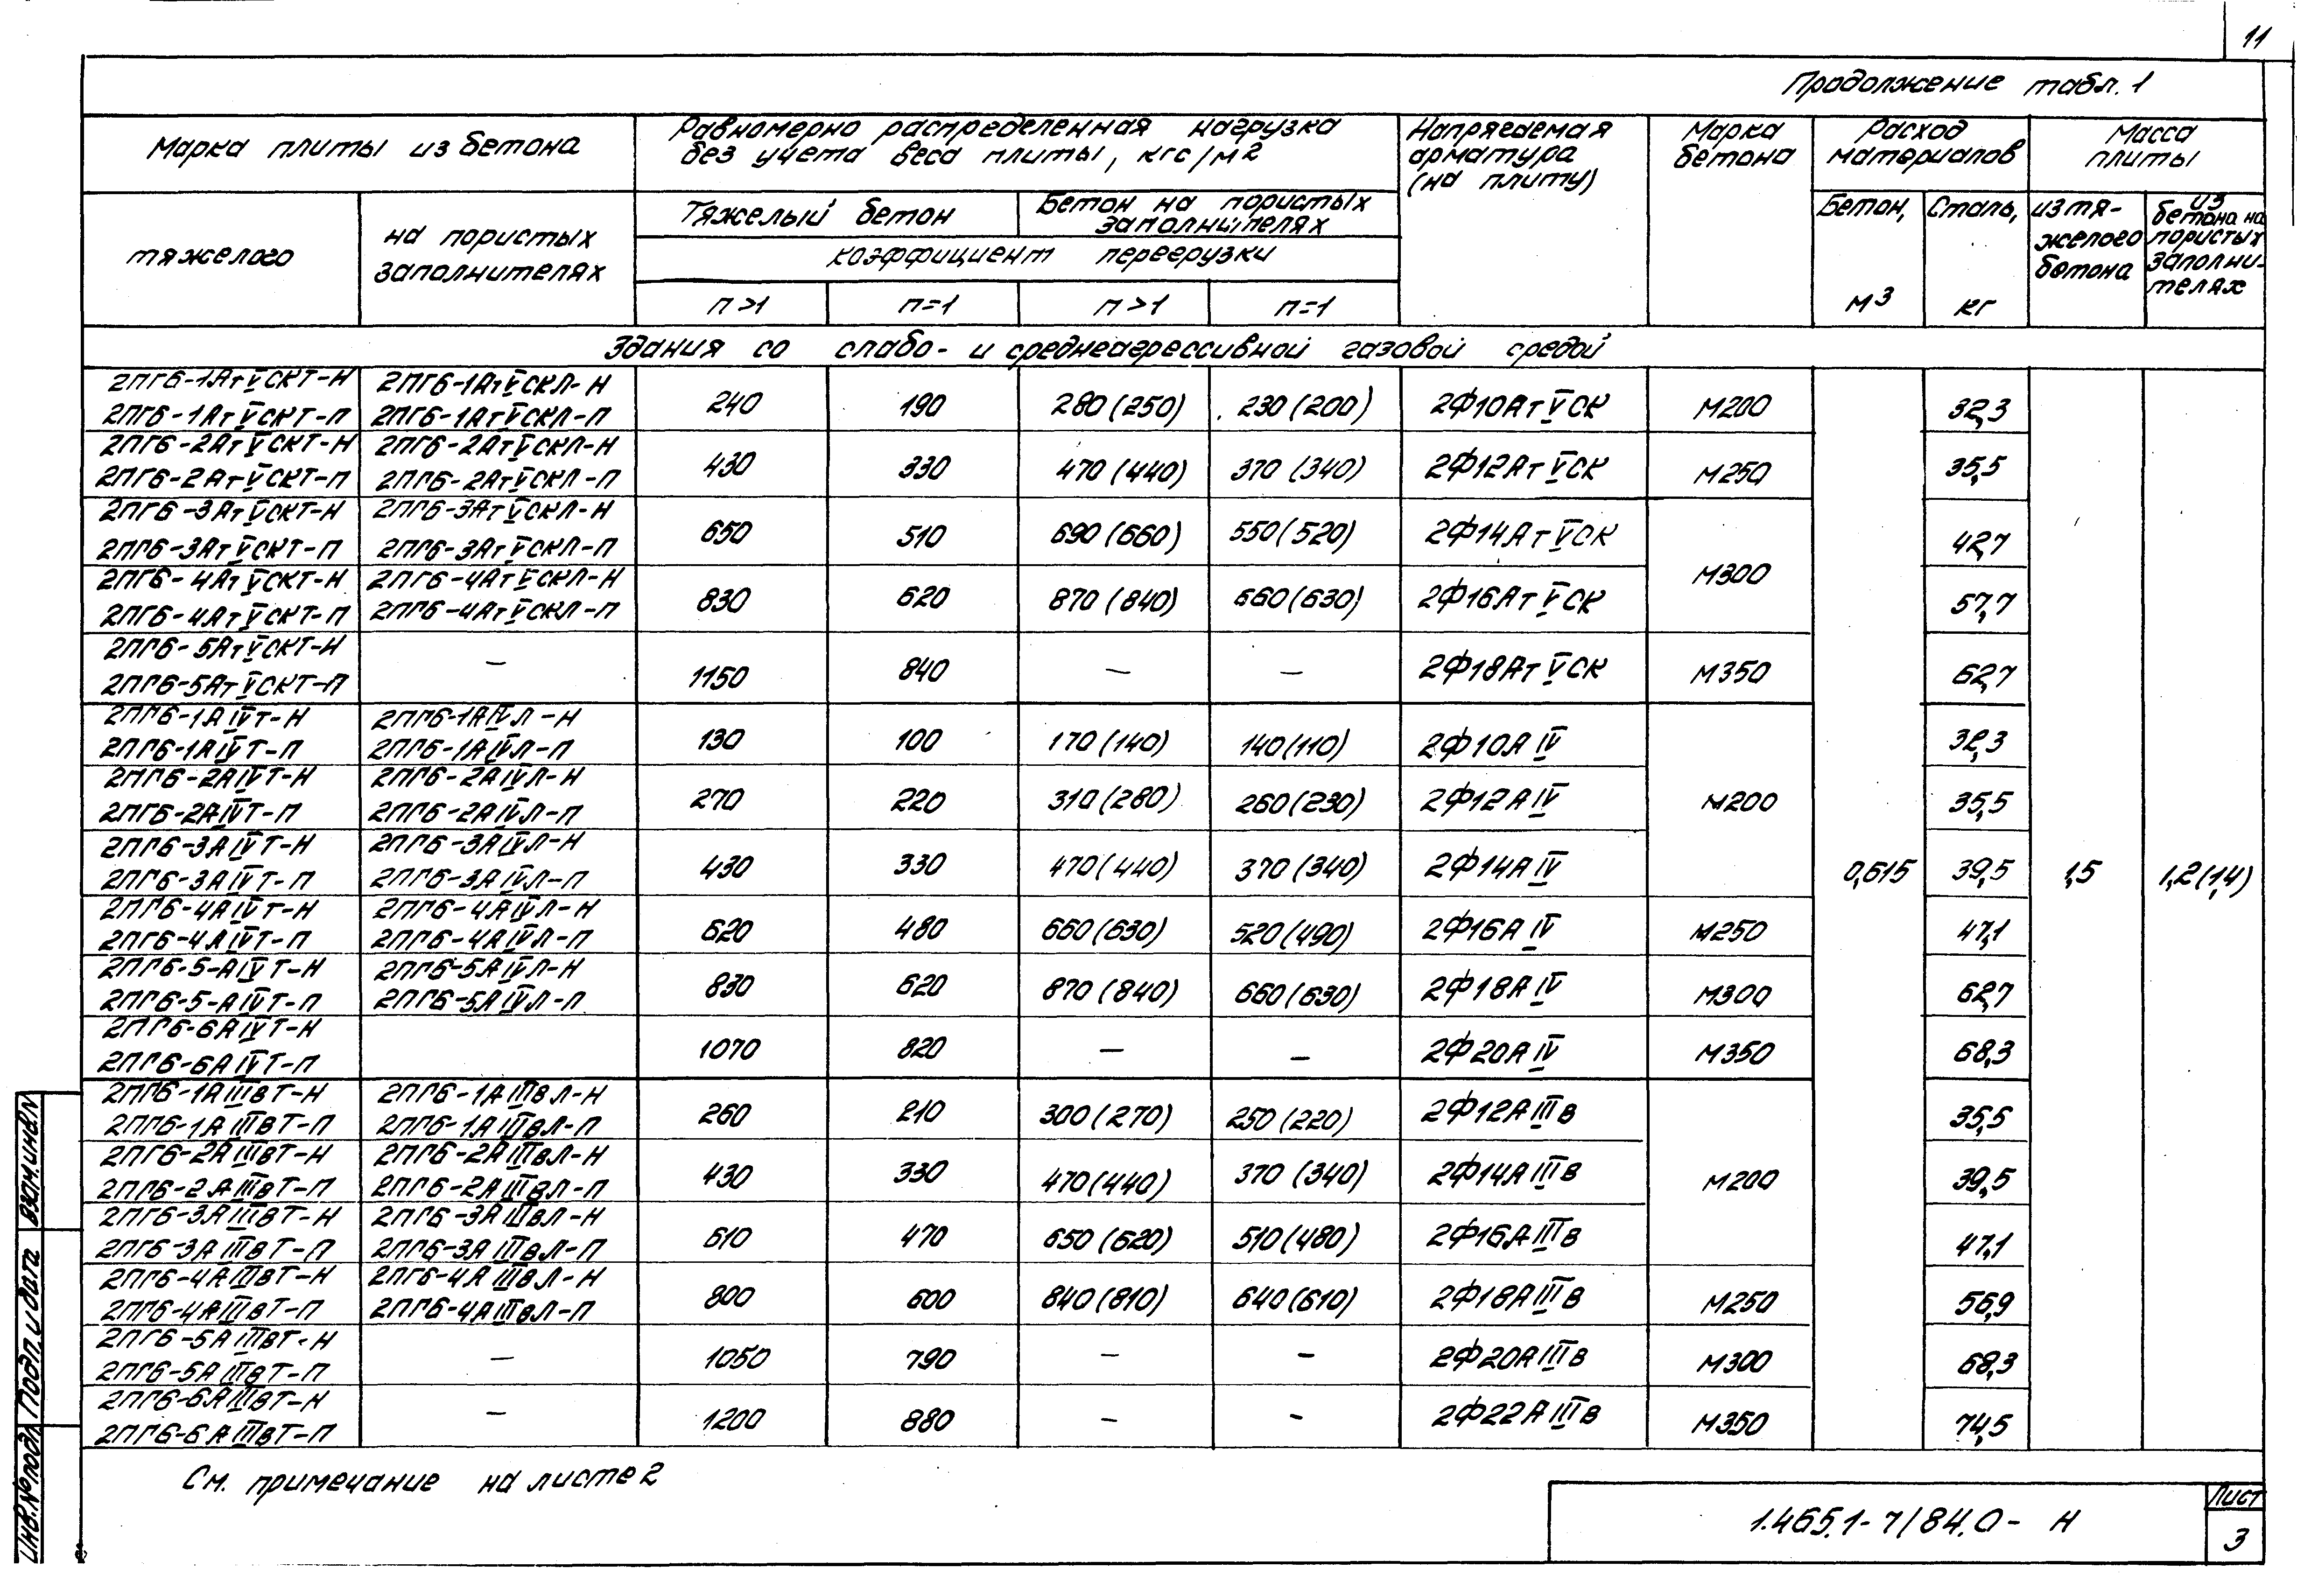 11
Продолжение табл. 1
Марка плиты из бетона
Равномерно распределенная нагрузка
без учета веса плиты, кгс/м2
Напрягаемая
арматура
(на плиту)
Марка
бетона
Расход
материалов
Масса
плиты
тяжелого
на пористых
заполнителях
Тяжелый бетон
Бетон на пористых
заполнителях
коэффициент перегрузки
п>1 п=1 п>1 п=1
Бетон,
м3
Сталь,
кг
из тя-
желого
бетона
из
бетона на
пористых
заполни-
телях
Здания со слабо- и среднеагрессивной газовой средой
2ПГ6-1АтVСКТ-Н 2ПГ6-1АтVСКЛ-Н
2ПГ6-1АтVСКТ-П 2ПГ6-1АтVСКЛ-П
240 190 280(250) 230(200) 2Ф10АтVСК М200 32,3
2ПГ6-2АтVСКТ-Н 2ПГ6-2АтVСКЛ-Н
2ПГ6-2АтVСКТ-П 2ПГ6-2АтVСКЛ-П
430 330 470(440) 370(340) 2Ф12АтVСК М250 35,5
2ПГ6-3АтVСКТ-Н 2ПГ6-3АтVСКЛ-Н
2ПГ6-3АтVСКТ-П 2ПГ6-3АтVСКЛ-П
650 510 690(660) 550(520) 2Ф14АтVСК 42,7
М300
2ПГ6-4АтVСКТ-Н 2ПГ6-4АтVСКЛ-Н
2ПГ6-4АтVСКТ-П 2ПГ6-4АтVСКЛ-П
830 620 870(840) 660(630) 2Ф16АтVСК 57,7
2ПГ6-5АтVСКТ-Н –
2ПГ6-5АтVСКТ-П
1150 840 – – 2Ф18АтVСК М350 62,7
2ПГ6-1АIVТ-Н 2ПГ6-1АIVЛ-Н
2ПГ6-1АIVТ-П 2ПГ6-1АIVЛ-П
130 100 170(140) 140(110) 2Ф10АIV 32,3
2ПГ6-2АIVТ-Н 2ПГ6-2АIVЛ-Н
2ПГ6-2АIVТ-П 2ПГ6-2АIVЛ-П
270 220 310(280) 260(230) 2Ф12АIV М200 35,5
2ПГ6-3АIVТ-Н 2ПГ6-3АIVЛ-Н
2ПГ6-3АIVТ-П 2ПГ6-3АIVЛ-П
430 330 470(440) 370(340) 2Ф14АIV 0,615 39,5 1,5 1,2(1,4)
2ПГ6-4АIVТ-Н 2ПГ6-4АIVЛ-Н
2ПГ6-4АIVТ-П 2ПГ6-4АIVЛ-П
620 480 660(630) 520(490) 2Ф16АIV М250 47,1
2ПГ6-5-АIVТ-Н 2ПГ6-5АIVЛ-Н
2ПГ6-5-АIVТ-П 2ПГ6-5АIVЛ-П
830 620 870(840) 660(630) 2Ф18АIV М300 62,7
2ПГ6-6АIVТ-Н
2ПГ6-6АIVТ-П
1070 820 – – 2Ф20АIV М350 68,3
2ПГ6-1АIIIвТ-Н 2ПГ6-1АIIIвЛ-Н
2ПГ6-1АIIIвТ-П 2ПГ6-1АIIIвЛ-П
260 210 300(270) 250(220) 2Ф12АIIIв 35,5
2ПГ6-2АIIIвТ-Н 2ПГ6-2АIIIвЛ-Н
2ПГ6-2АIIIвТ-П 2ПГ6-2АIIIвЛ-П
430 330 470(440) 370(340) 2Ф14АIIIв М200 39,5
2ПГ6-3АIIIвТ-Н 2ПГ6-3АIIIвЛ-Н
2ПГ6-3АIIIвТ-П 2ПГ6-3АIIIвЛ-П
610 470 650(620) 510(480) 2Ф16АIIIв 47,1
2ПГ6-4АIIIвТ-Н 2ПГ6-4АIIIвЛ-Н
2ПГ6-4АIIIвТ-П 2ПГ6-4АIIIвЛ-П
800 600 840(810) 640(610) 2Ф18АIIIв М250 56,9
2ПГ6-5АIIIвТ-Н –
2ПГ6-5АIIIвТ-П
1050 790 – – 2Ф20АIIIв М300 68,3
2ПГ6-6АIIIвТ-Н –
2ПГ6-6АIIIвТ-П
1200 880 – – 2Ф22АIIIв М350 74,5
См. примечание на листе 2
1.465.1-7/84.0- Н
Лист
3
Инв.№подл. Подп. и дата Взам.инв.N